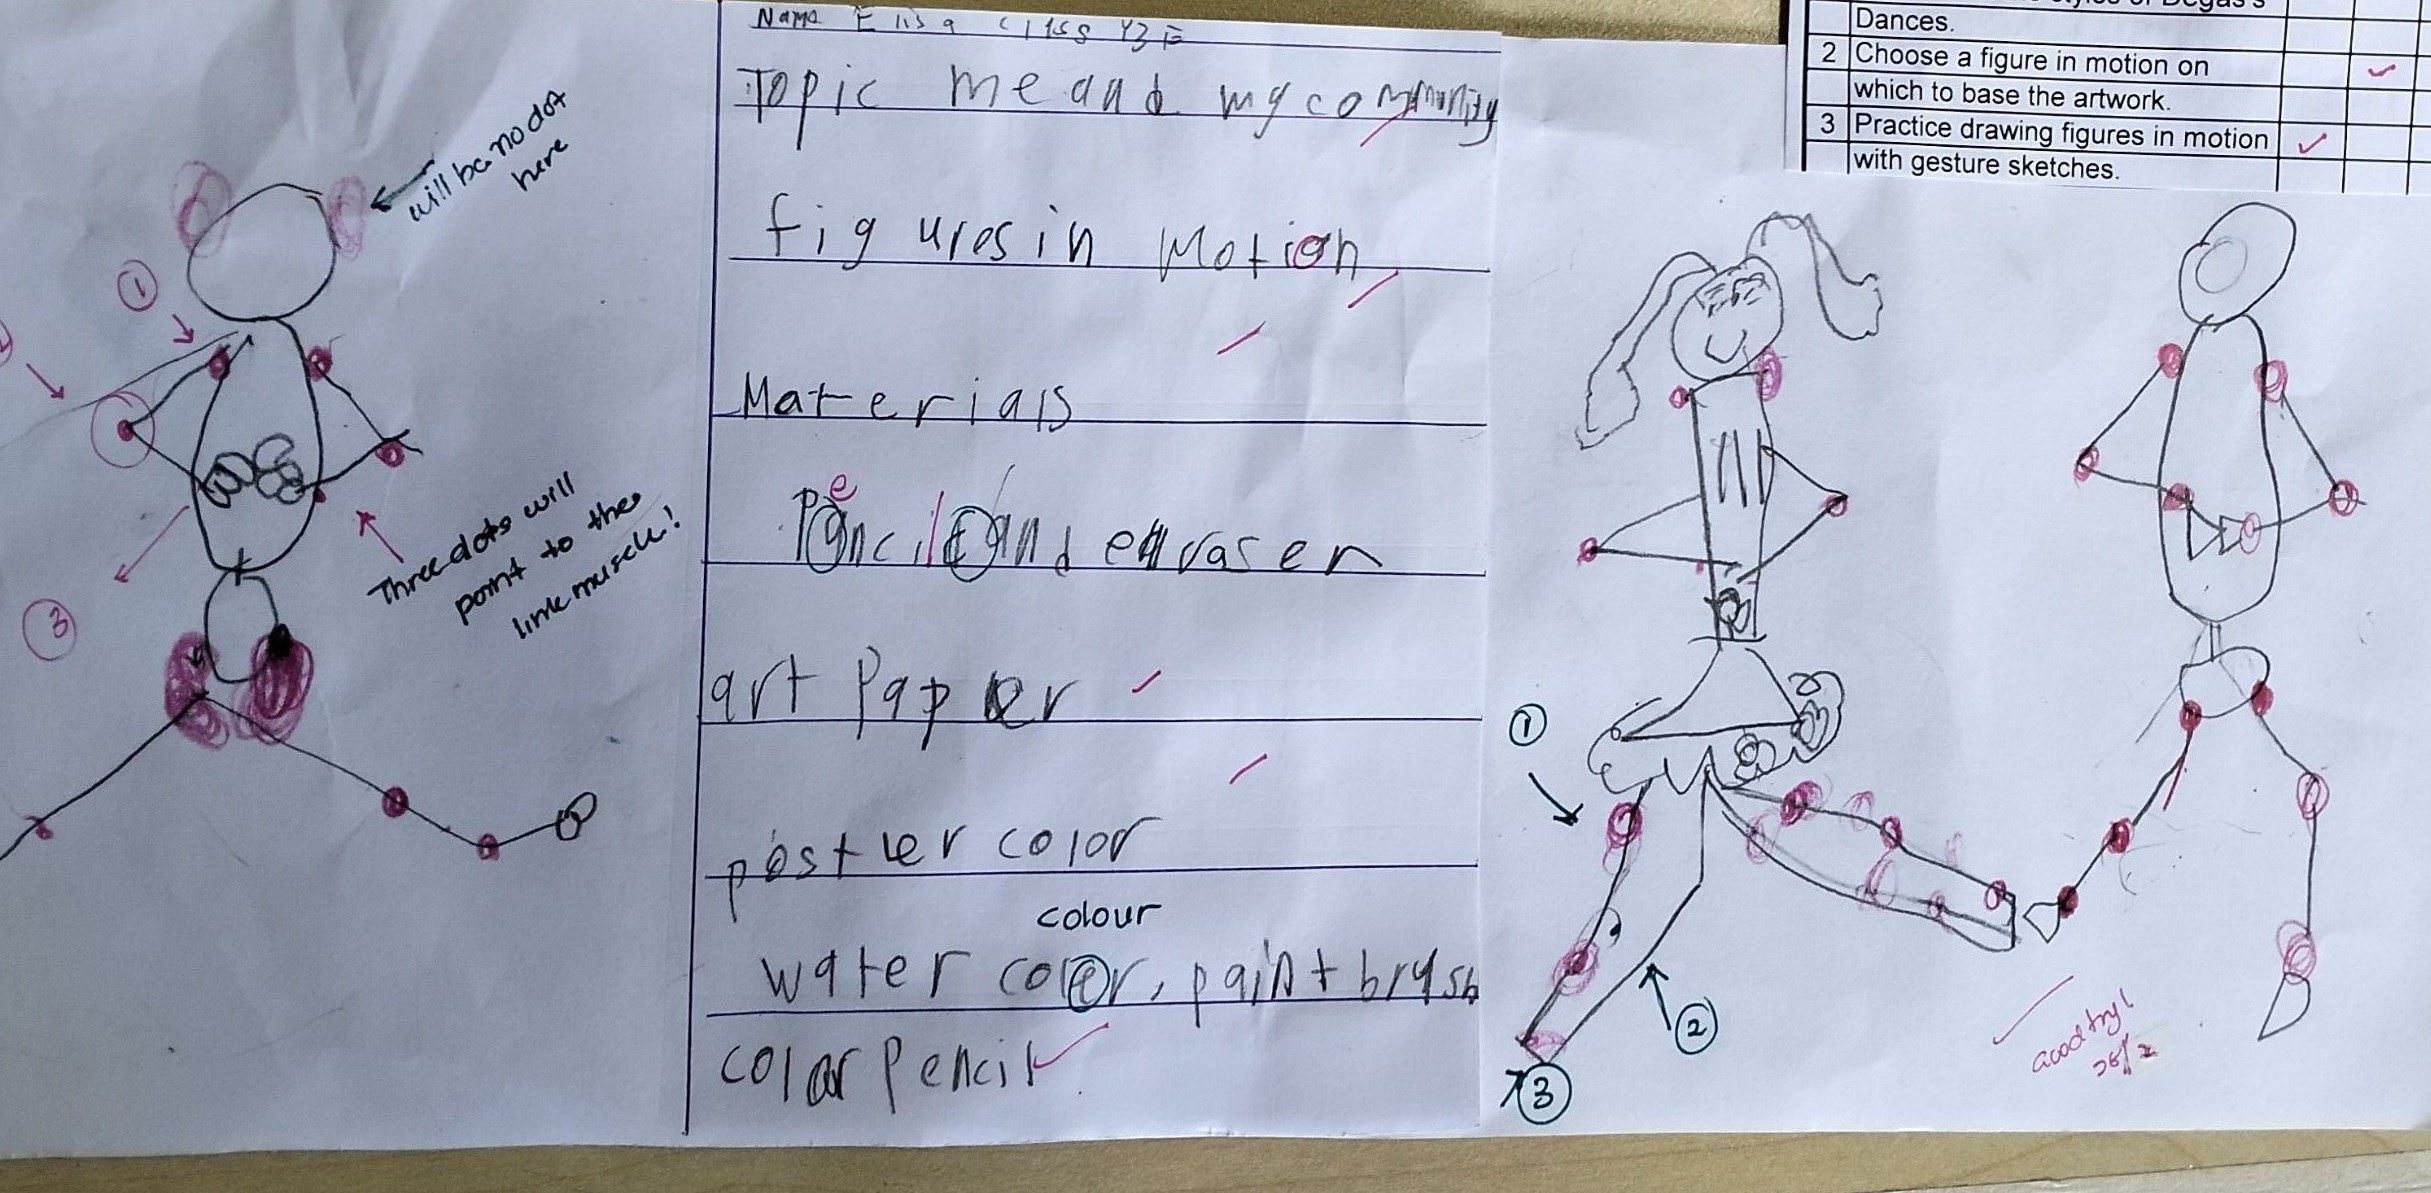 Name Elisa class Y3E
Topic me and my community
figures in Motion
Materials
e
Pancil and earaser
art Paper
poster color
colour
water color, paint brush
color Pencil
will be no dot
here
1
3
Three dots will
point to the
line muscle!
Dances.
2 Choose a figure in motion on
which to base the artwork.
3 Practice drawing figures in motion
with gesture sketches.
1
2
3
Good try!